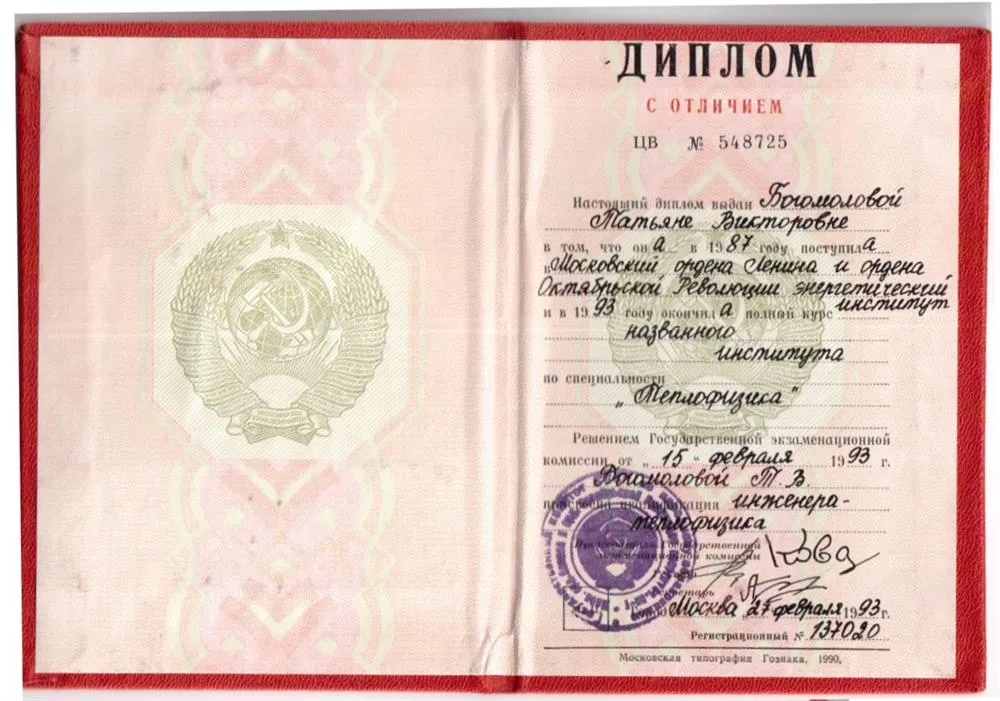 ДИПЛОМ
С ОТЛИЧИЕМ
ЦВ № 548725
Настоящий диплом выдан Богомоловой
Татьяне Викторовне
в том, что он а в 1987 году поступил а
в Московский ордена Ленина и ордена
Октябрьской Революции энергетический
институт
и в 1993 году окончил а полный курс
названного
института
по специальности
„Теплофизика“
Решением Государственной экзаменационной
комиссии от „15“ февраля 1993 г.
Богомоловой Т. В.
присвоена квалификация инженера-
теплофизика
Председатель Государственной
экзаменационной комиссии
Секретарь
Город Москва „27“ февраля 1993 г.
Регистрационный № 137020
Московская типография Гознака, 1990.